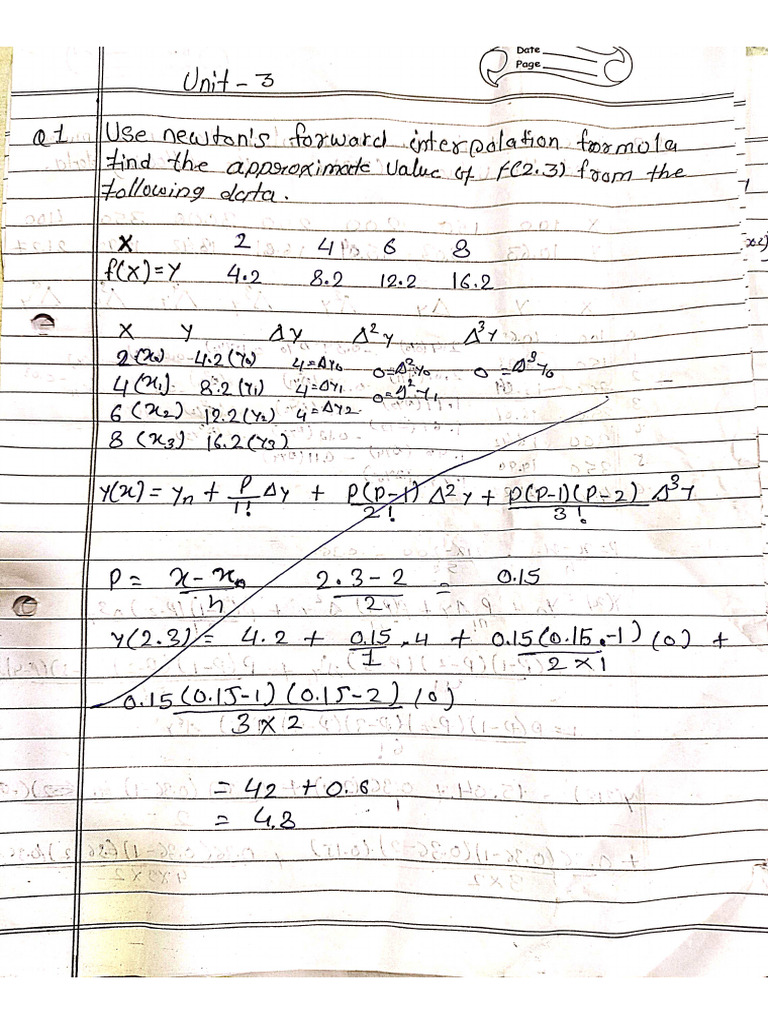 Date
Page
Unit - 3
Q1 Use newton's forward interpolation formula
find the approximate value of f(2.3) from the
following data.
X 2 4 6 8
f(x)=Y 4.2 8.2 12.2 16.2
X Y ΔY Δ²Y Δ³Y
2 (x₀) 4.2 (Y₀) 4=ΔY₀ 0=Δ²Y₀ 0=Δ³Y₀
4 (x₁) 8.2 (Y₁) 4=ΔY₁ 0=Δ²Y₁
6 (x₂) 12.2 (Y₂) 4=ΔY₂
8 (x₃) 16.2 (Y₃)
Y(x) = Yₙ + P/1! ΔY + P(P-1)/2! Δ²Y + P(P-1)(P-2)/3! Δ³Y
P = x-xₙ/h 2.3-2/2 = 0.15
Y(2.3) = 4.2 + 0.15/1 . 4 + 0.15(0.15-1)/2×1 (0) +
0.15(0.15-1)(0.15-2)/3×2 (0)
= 42 + 0.6
= 4.8